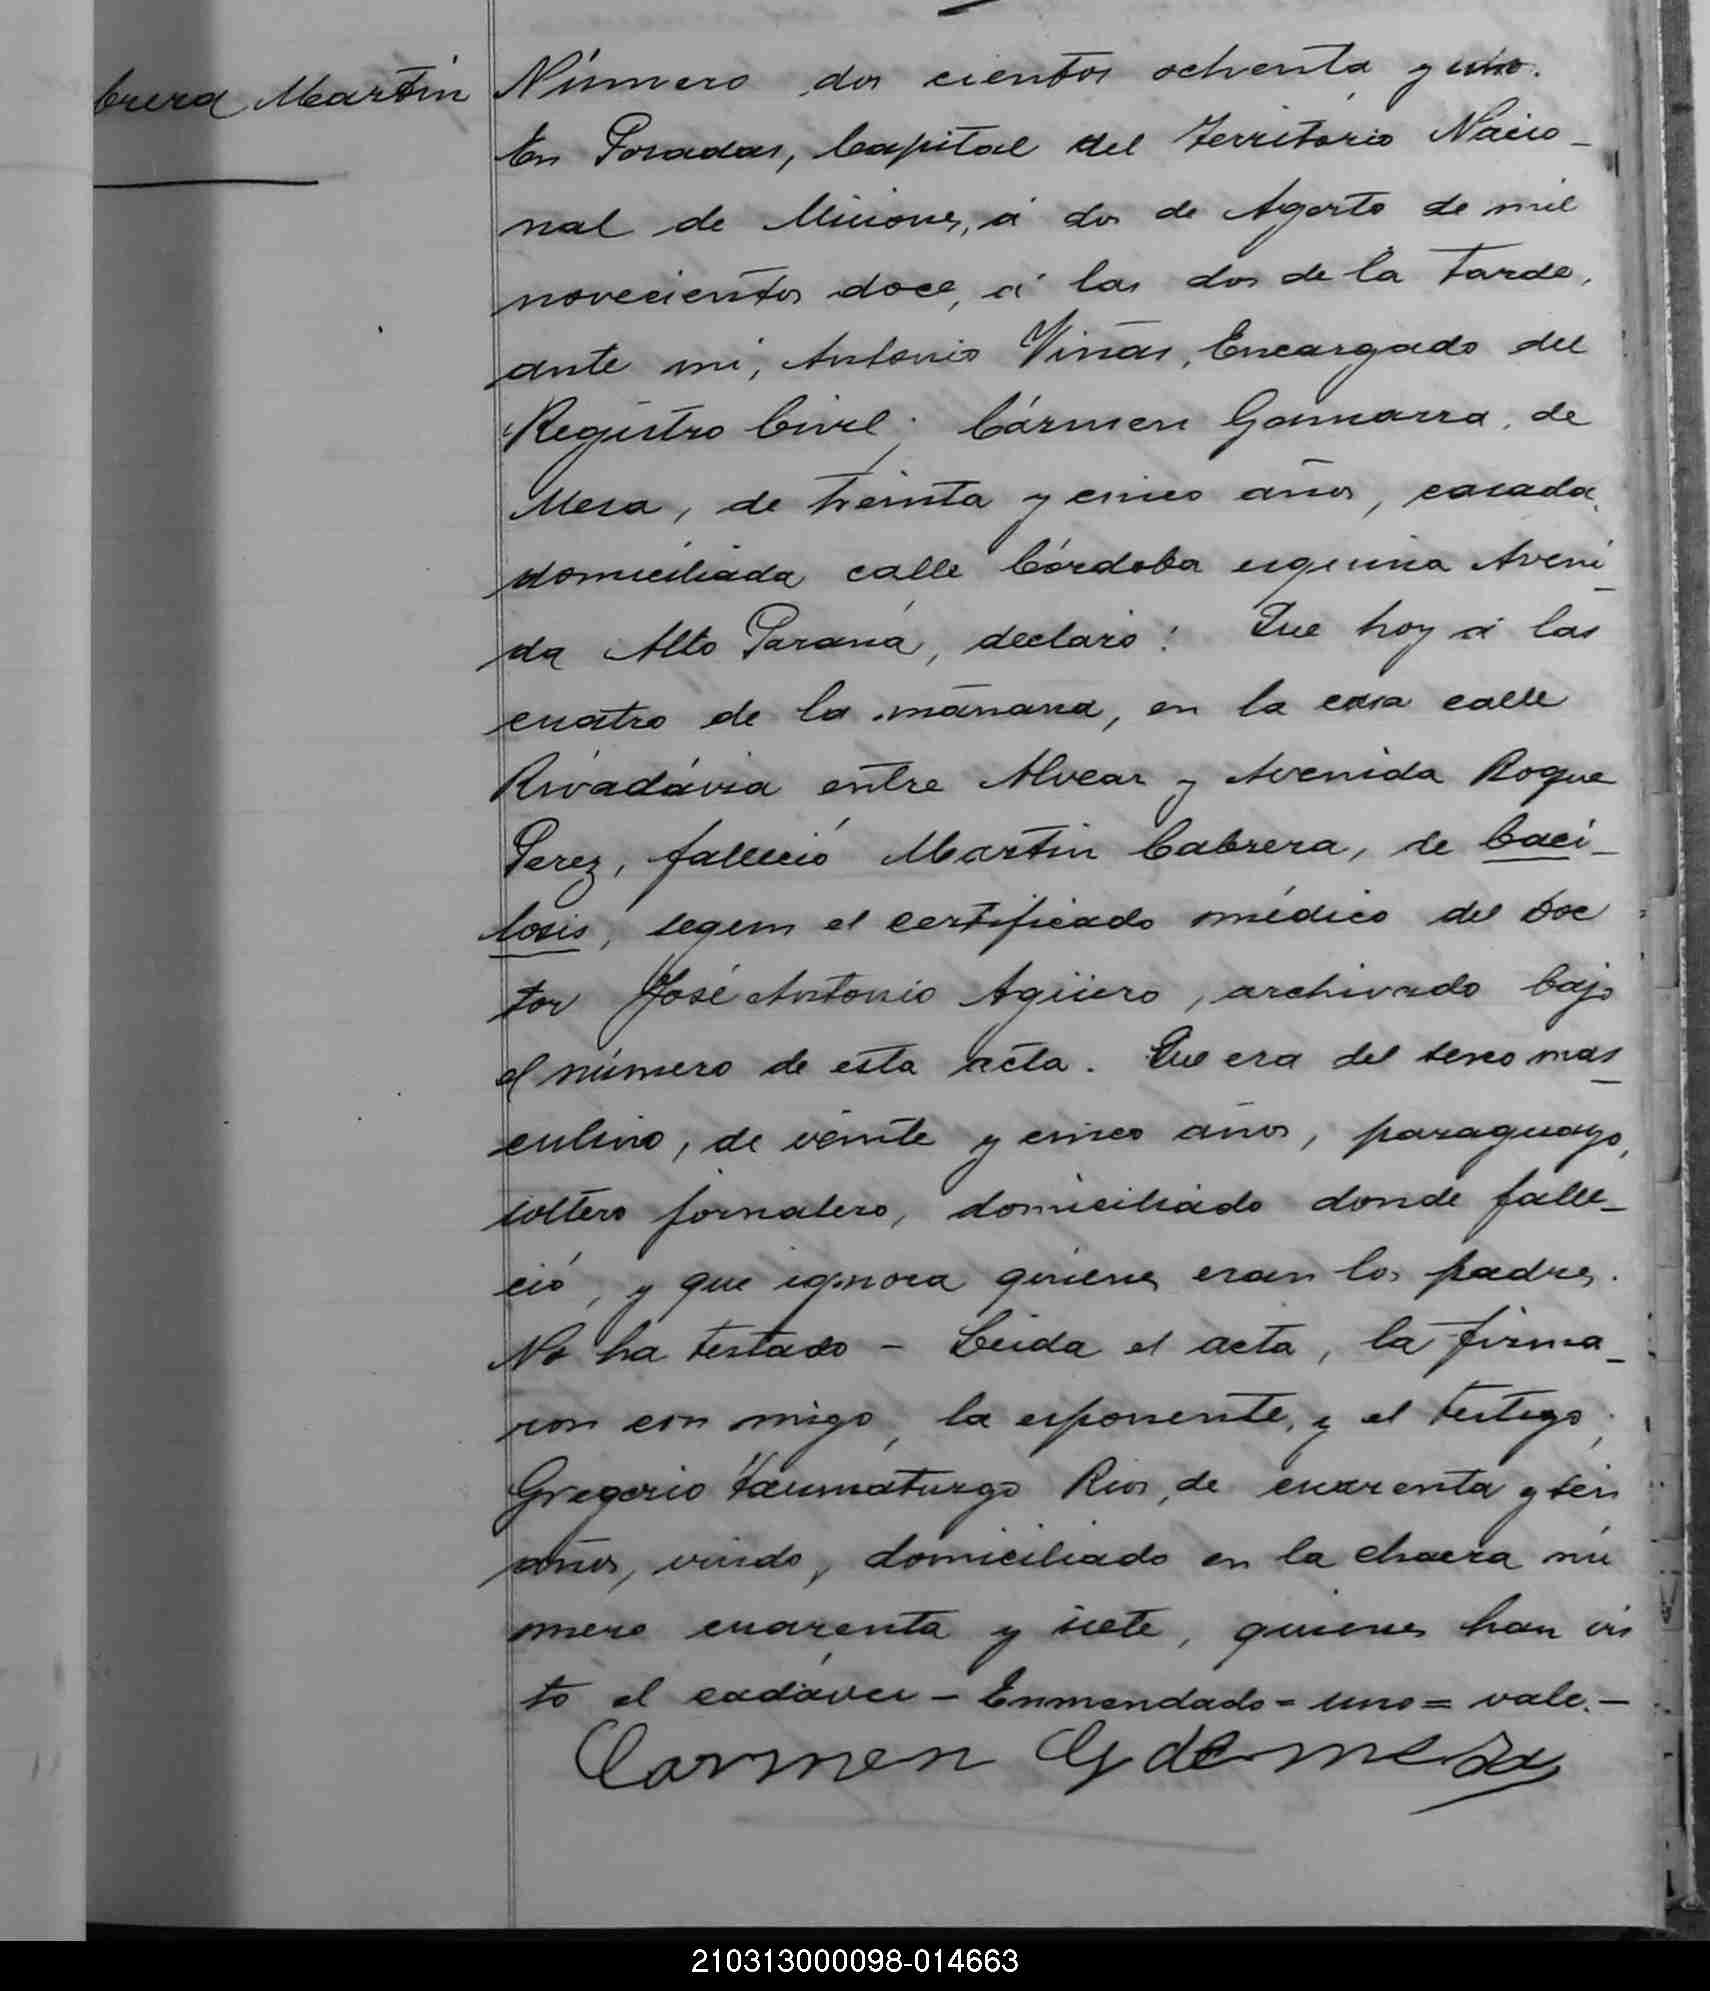 brera Martin
Número dos cientos ochenta y uno.
En Posadas, Capital del Territorio Nacio-
nal de Misiones, á dos de Agosto de mil
novecientos doce, á las dos de la tarde,
ante mi, Antonio Viñas, Encargado del
Registro Civil; Cármen Gamarra, de
Mesa, de treinta y cinco años, casada,
domiciliada calle Córdoba esquina Aveni-
da Alto Paraná, declaró: Que hoy á las
cuatro de la mañana, en la casa calle
Rivadávia entre Alvear y Avenida Roque
Perez, falleció Martin Cabrera, de baci-
losis, segun el certificado médico del Doc
tor José Antonio Agüero, archivado bajo
el número de esta acta. Que era del sexo mas-
culino, de veinte y cinco años, paraguayo,
soltero jornalero, domiciliado donde falle-
ció, y que ignora quiénes eran los padres.
No ha testado - Leida el acta, la firma-
ron con migo, la esponente, y el testigo;
Gregorio Taumaturgo Rios, de cuarenta y seis
años, viudo, domiciliado en la chacra nú
mero cuarenta y siete, quienes han vis
to el cadáver - Enmendado = uno = vale. -
Carmen G de mesa
210313000098-014663